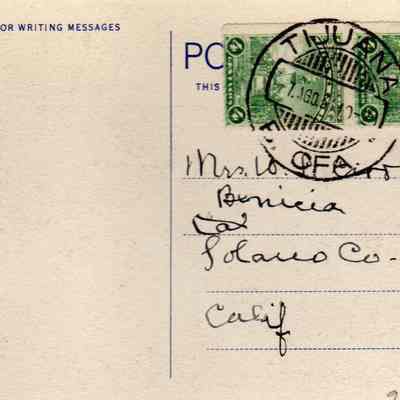 OR WRITING MESSAGES
PO
THIS
TIJUANA
B. CFA.
Mrs. W.
Benicia
Solano Co-
Calif